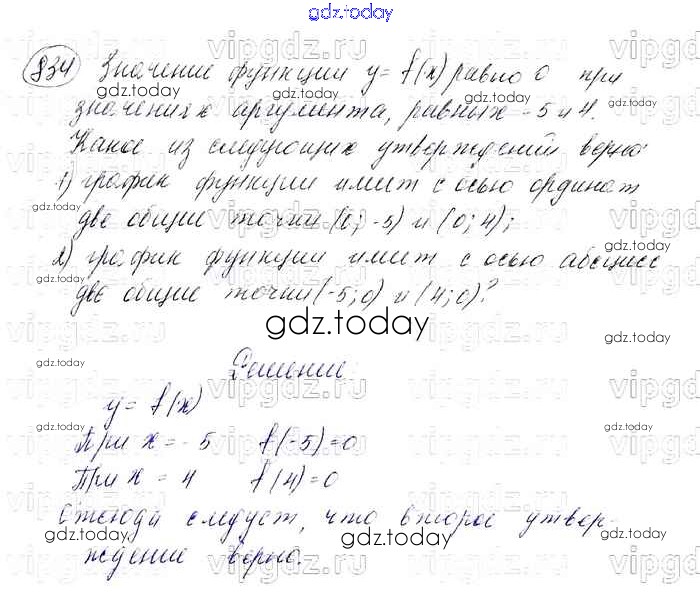 gdz.today
834 Значение функции y = f(x) равно 0 при
значениях аргумента, равных -5 и 4.
Какое из следующих утверждений верно:
1) график функции имеет с осью ординат
две общие точки (0; -5) и (0; 4);
2) график функции имеет с осью абсцисс
две общие точки (-5; 0) и (4; 0)?
gdz.today
Решение:
y = f(x)
При x = -5 f(-5) = 0
При x = 4 f(4) = 0
Отсюда следует, что второе утвер-
ждение верно.